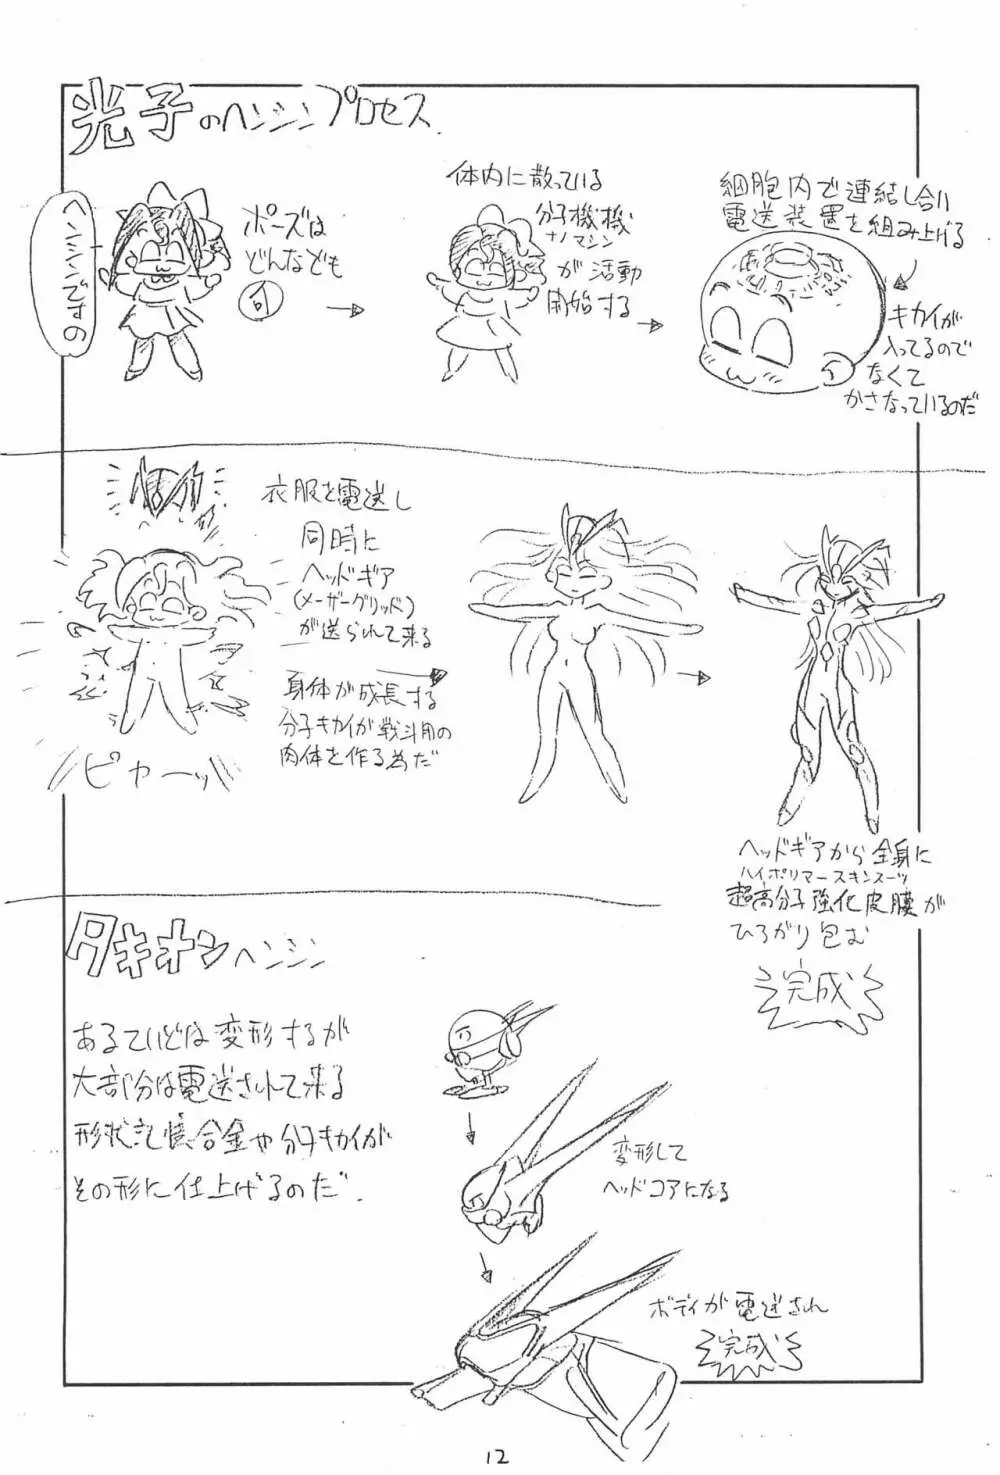 光子のヘンシンプロセス
ヘンシンですの
ポーズは
どんなでも
可
体内に散っている
分子機機
ナノマシン
が活動
開始する
細胞内で連結し合い
電送装置を組み上げる
キカイが
入ってるので
なくて
かさなっているのだ
衣服を電送し
同時に
ヘッドギア
(メーザーグリッド)
が送られて来る
身体が成長する
分子キカイが戦斗用の
肉体を作る為だ
ピャーッ
ヘッドギアから全身に
ハイポリマースキンスーツ
超高分子強化皮膜が
ひろがり包む
完成
タキオンヘンシン
あるていどは変形するが
大部分は電送されて来る
形状記憶合金や分子キカイが
その形に仕上げるのだ.
変形して
ヘッドコアになる
ボディが電送され
完成
12